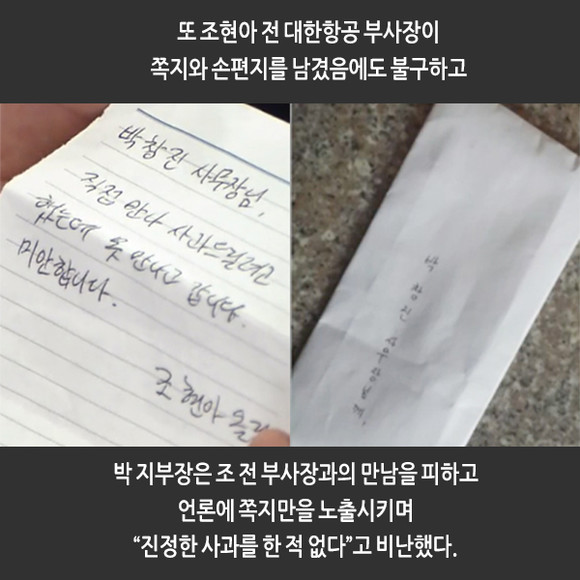 또 조현아 전 대한항공 부사장이
쪽지와 손편지를 남겼음에도 불구하고
박창진 사무장님,
직접 만나 사과드릴려고
했는데 못 만나고 갑니다.
미안합니다.
조현아 올림
박 창 진 사무장님께.
박 지부장은 조 전 부사장과의 만남을 피하고
언론에 쪽지만을 노출시키며
“진정한 사과를 한 적 없다”고 비난했다.